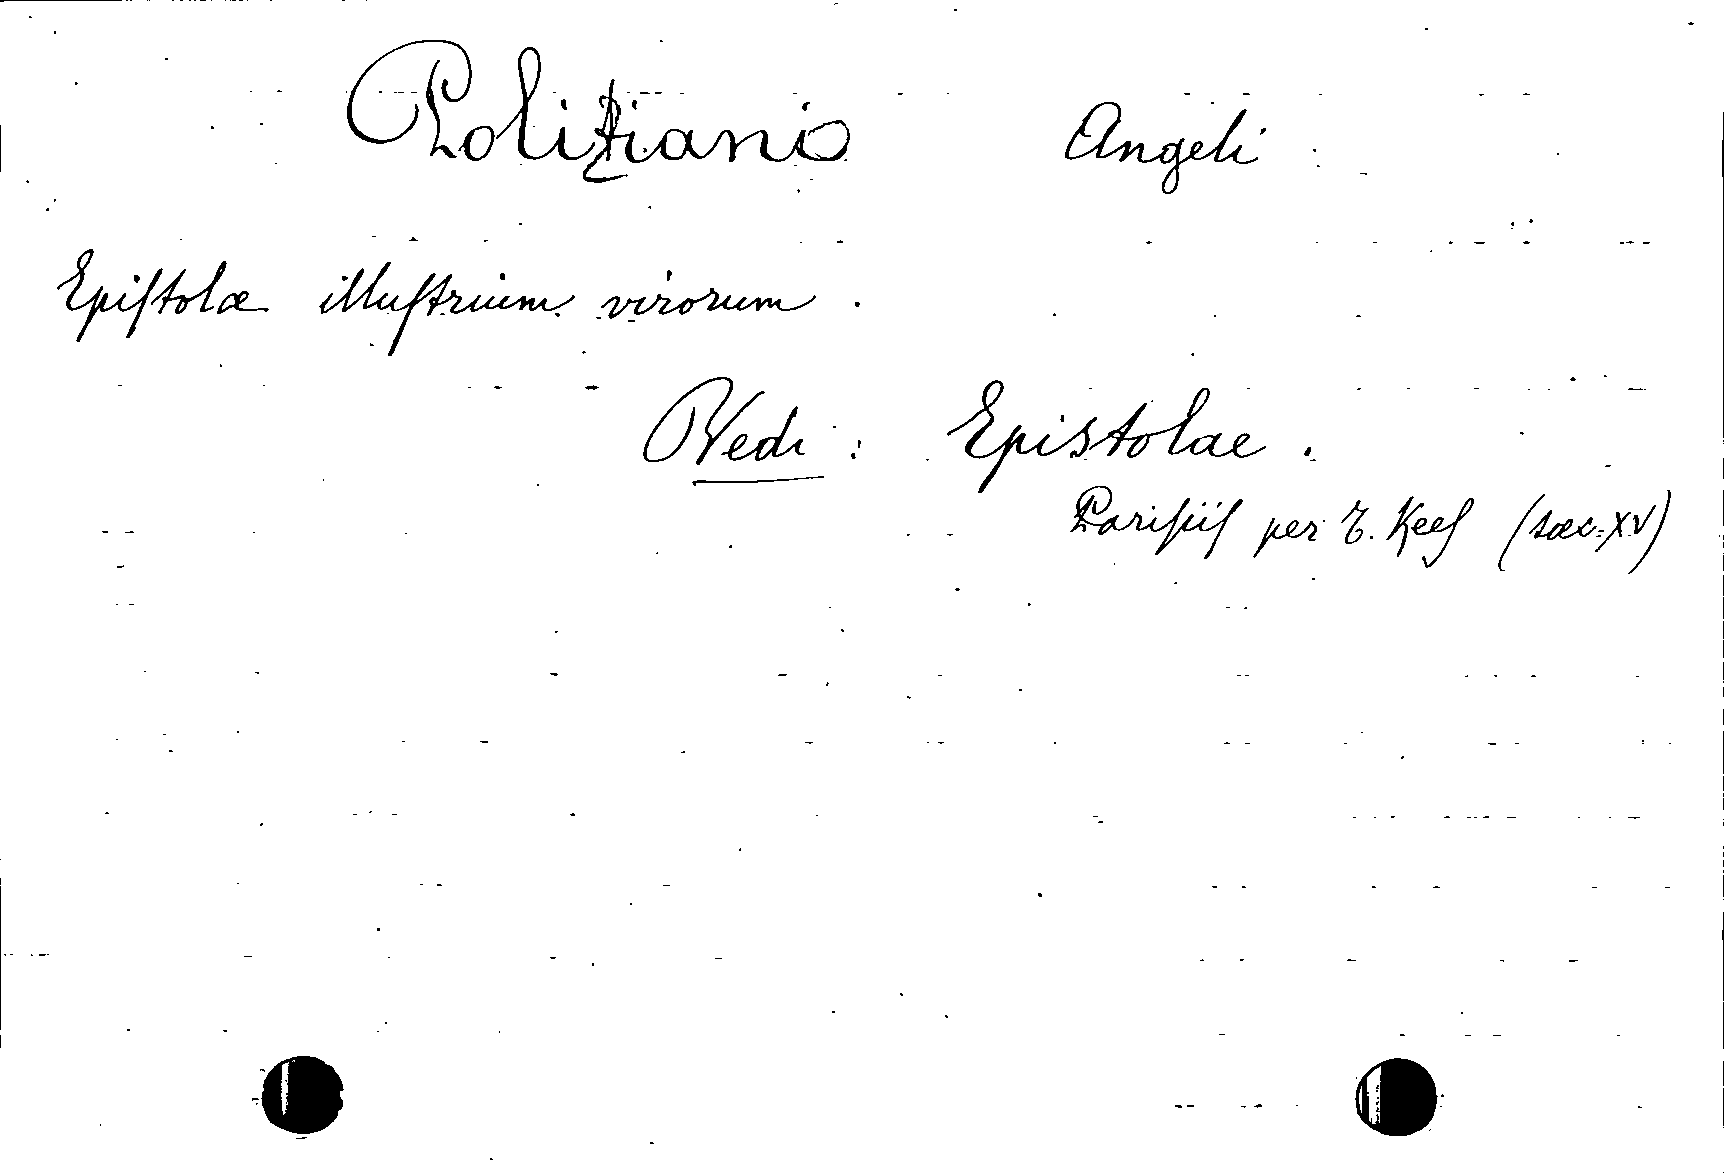 Poliziano Angeli
Epiſtolæ illuſtrium virorum .
Vedi : Epistolae .
Pariſiiſ per T. Keeſ (sæc. XV)